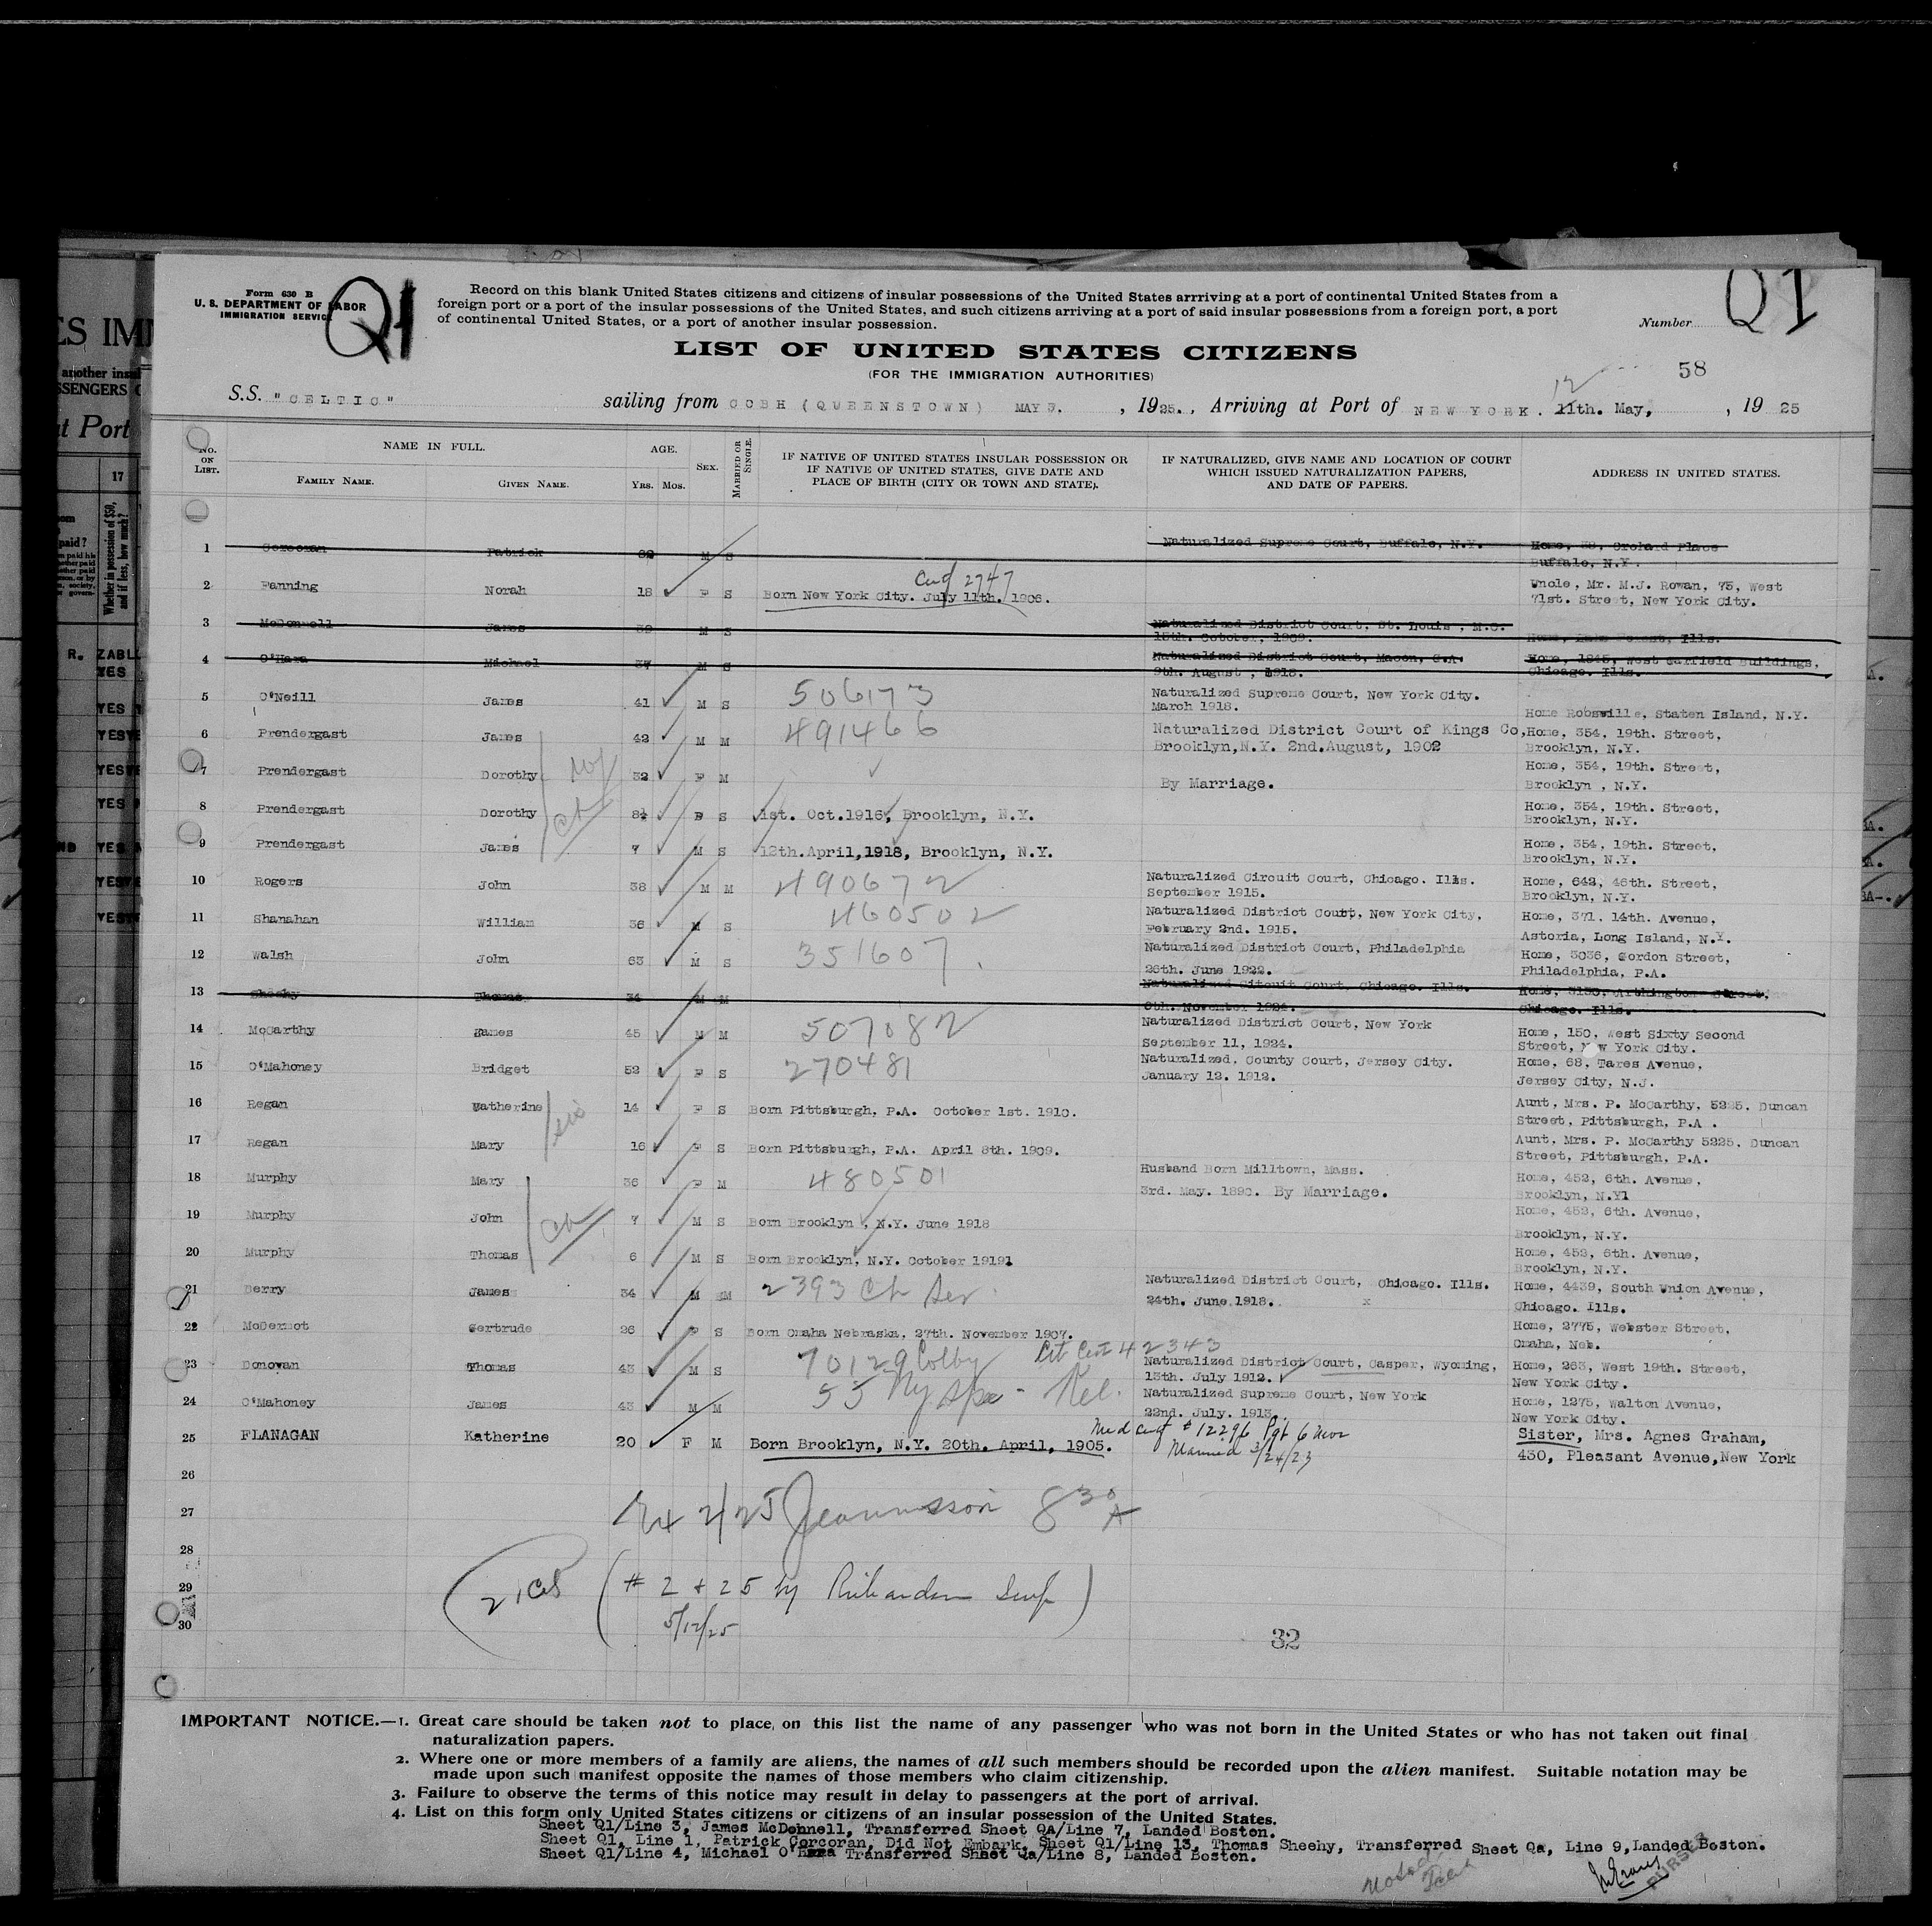 Form 630 B
U. S. DEPARTMENT OF LABOR
IMMIGRATION SERVICE
Q1
Record on this blank United States citizens and citizens of insular possessions of the United States arrriving at a port of continental United States from a
foreign port or a part of the insular possessions of the United States, and such citizens arriving at a port of said insular possessions from a foreign port, a port
of continental United States, or a part of another insular possession.
Number Q1
LIST OF UNITED STATES CITIZENS
(FOR THE IMMIGRATION AUTHORITIES)
58
12
S.S. "CELTIC" sailing from COBH (QUEENSTOWN) MAY 3. , 1925. , Arriving at Port of NEW YORK. 11th. May, , 19 25
No. ON LIST.
NAME IN FULL.
FAMILY NAME. GIVEN NAME.
AGE.
YRS. MOS.
SEX.
MARRIED OR SINGLE.
IF NATIVE OF UNITED STATES INSULAR POSSESSION OR
IF NATIVE OF UNITED STATES, GIVE DATE AND
PLACE OF BIRTH (CITY OR TOWN AND STATE).
IF NATURALIZED, GIVE NAME AND LOCATION OF COURT
WHICH ISSUED NATURALIZATION PAPERS,
AND DATE OF PAPERS.
ADDRESS IN UNITED STATES.
1 Corcoran Patrick M S Naturalized Supreme Court, Buffalo, N.Y. Home, 38, Orchard Place
Buffalo, N.Y.
2 Fanning Norah 18 F S Born New York City. July 11th. 1906. Uncle, Mr. M.J. Rowan, 75, West
71st. Street, New York City.
3 McDonnell James 39 M S Naturalized District Court, St. Louis, M.O.
15th. October, 1909. Home, Lake Forest, Ills.
4 O'Hara Michael 37 M S Naturalized District Court, Macon, G.A. Home, 1845, West Garfield Buildings,
9th. August, 1918. Chicago. Ills.
5 O'Neill James 41 M S 506173 Naturalized Supreme Court, New York City.
March 1918. Home Rossville, Staten Island, N.Y.
6 Prendergast James 42 M M 491466 Naturalized District Court of Kings Co, Home, 354, 19th. Street,
Brooklyn,N.Y. 2nd.August, 1902 Brooklyn, N.Y.
7 Prendergast Dorothy 32 F M By Marriage. Home, 354, 19th. Street,
Brooklyn , N.Y.
8 Prendergast Dorothy 8½ F S 1st. Oct.1916, Brooklyn, N.Y. Home, 354, 19th. Street,
Brooklyn, N.Y.
9 Prendergast James 7 M S 12th.April,1918, Brooklyn, N.Y. Home, 354, 19th. Street,
Brooklyn, N.Y.
10 Rogers John 38 M M 490672 Naturalized Circuit Court, Chicago. Ills. Home, 642, 46th. Street,
September 1915. Brooklyn, N.Y.
11 Shanahan William 36 M S 460502 Naturalized District Court, New York City, Home, 371. 14th. Avenue,
February 2nd. 1915. Astoria, Long Island, N.Y.
12 Walsh John 63 M S 351607 Naturalized District Court, Philadelphia Home, 3036, Gordon Street,
26th. June 1922. Philadelphia, P.A.
13 Sheehy Thomas 34 M M Naturalized Citcuit Court, Chicago. Ills. Home, 3150, Arthington Street,
6th. November 1924. Chicago. Ills.
14 McCarthy James 45 M M 507082 Naturalized District Court, New York Home, 150, West Sixty Second
September 11, 1924. Street, New York City.
15 O'Mahoney Bridget 52 F S 270481 Naturalized, County Court, Jersey City. Home, 68, Tares Avenue,
January 12. 1912. Jersey City, N.J.
16 Regan Catherine 14 F S Born Pittsburgh, P.A. October 1st. 1910. Aunt, Mrs. P. McCarthy, 5225. Duncan
Street, Pittsburgh, P.A .
17 Regan Mary 16 F S Born Pittsburgh, P.A. April 8th. 1909. Aunt, Mrs. P. McCarthy 5225. Duncan
Street, Pittsburgh, P.A.
18 Murphy Mary 36 F M 480501 Husband Born Milltown, Mass. Home, 452, 6th. Avenue,
3rd. May. 1890. By Marriage. Brooklyn, N.Y1
19 Murphy John 7 M S Born Brooklyn , N.Y. June 1918 Home, 452, 6th. Avenue,
Brooklyn, N.Y.
20 Murphy Thomas 6 M S Born Brooklyn, N.Y. October 1919 Home, 452, 6th. Avenue,
Brooklyn, N.Y.
21 Berry James 34 M M 2393 Naturalized District Court, Chicago. Ills. Home, 4439, South Union Avenue,
24th. June 1918. x Chicago. Ills.
22 McDermot Gertrude 26 F S Born Omaha Nebraska, 27th. November 1907. Home, 2775, Webster Street,
Omaha, Neb.
23 Donovan Thomas 43 M S 70129 Colby 42343 Naturalized District Court, Casper, Wyoming, Home, 263, West 19th. Street,
15th. July 1912. New York City.
24 O'Mahoney James 43 M M 55 Naturalized Supreme Court, New York Home, 1275, Walton Avenue,
22nd. July. 1913. New York City.
25 FLANAGAN Katherine 20 F M Born Brooklyn, N.Y. 20th. April, 1905. # 12296 6 Mos Married 3/24/23 Sister, Mrs. Agnes Graham,
430, Pleasant Avenue,New York
26
27
28
29
30
8 30 A
(# 2 + 25 by Richardson Insp)
5/12/25
32
IMPORTANT NOTICE.—1. Great care should be taken not to place on this list the name of any passenger who was not born in the United States or who has not taken out final
naturalization papers.
2. Where one or more members of a family are aliens, the names of all such members should be recorded upon the alien manifest. Suitable notation may be
made upon such manifest opposite the names of those members who claim citizenship.
3. Failure to observe the terms of this notice may result in delay to passengers at the port of arrival.
4. List on this form only United States citizens or citizens of an insular possession of the United States.
Sheet Q1/Line 3, James McDonnell, Transferred Sheet QA/Line 7, Landed Boston.
Sheet Q1, Line 1, Patrick Corcoran, Did Not Embark. Sheet Q1/Line 13, Thomas Sheehy, Transferred Sheet Qa, Line 9,Landed Boston.
Sheet Q1/Line 4, Michael O'Hara Transferred Sheet Qa/Line 8, Landed Boston.
PURSER